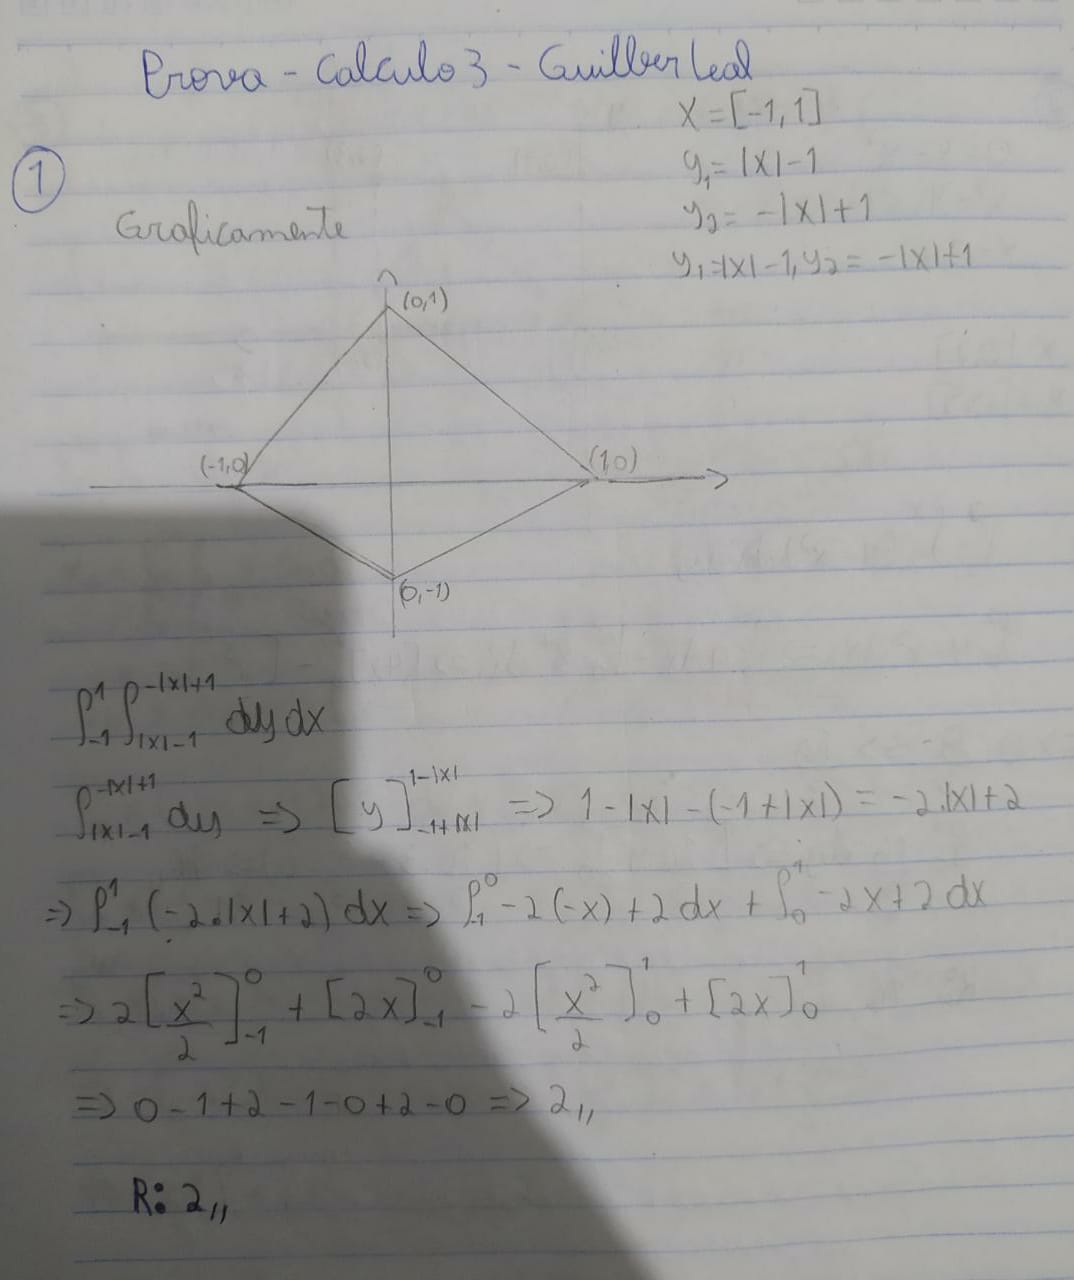 Prova - Calculo 3 - Guilber Leal
x = [-1, 1]
y₁ = |x| - 1
y₂ = -|x| + 1
y₁ = |x| - 1, y₂ = -|x| + 1
1
Graficamente
(0,1)
(-1,0)
(1,0)
(0,-1)
∫₋₁¹ ∫_{|x|-1}^{-|x|+1} dy dx
∫_{|x|-1}^{-|x|+1} dy => [y]_{-1+|x|}^{1-|x|} => 1 - |x| - (-1 + |x|) = -2.|x| + 2
=> ∫₋₁¹ (-2.|x| + 2) dx => ∫₁⁰ -2(-x) + 2 dx + ∫₀¹ -2x + 2 dx
=> 2[x²/2]₋₁⁰ + [2x]₋₁⁰ - 2[x²/2]₀¹ + [2x]₀¹
=> 0 - 1 + 2 - 1 - 0 + 2 - 0 => 2,,
R: 2,,